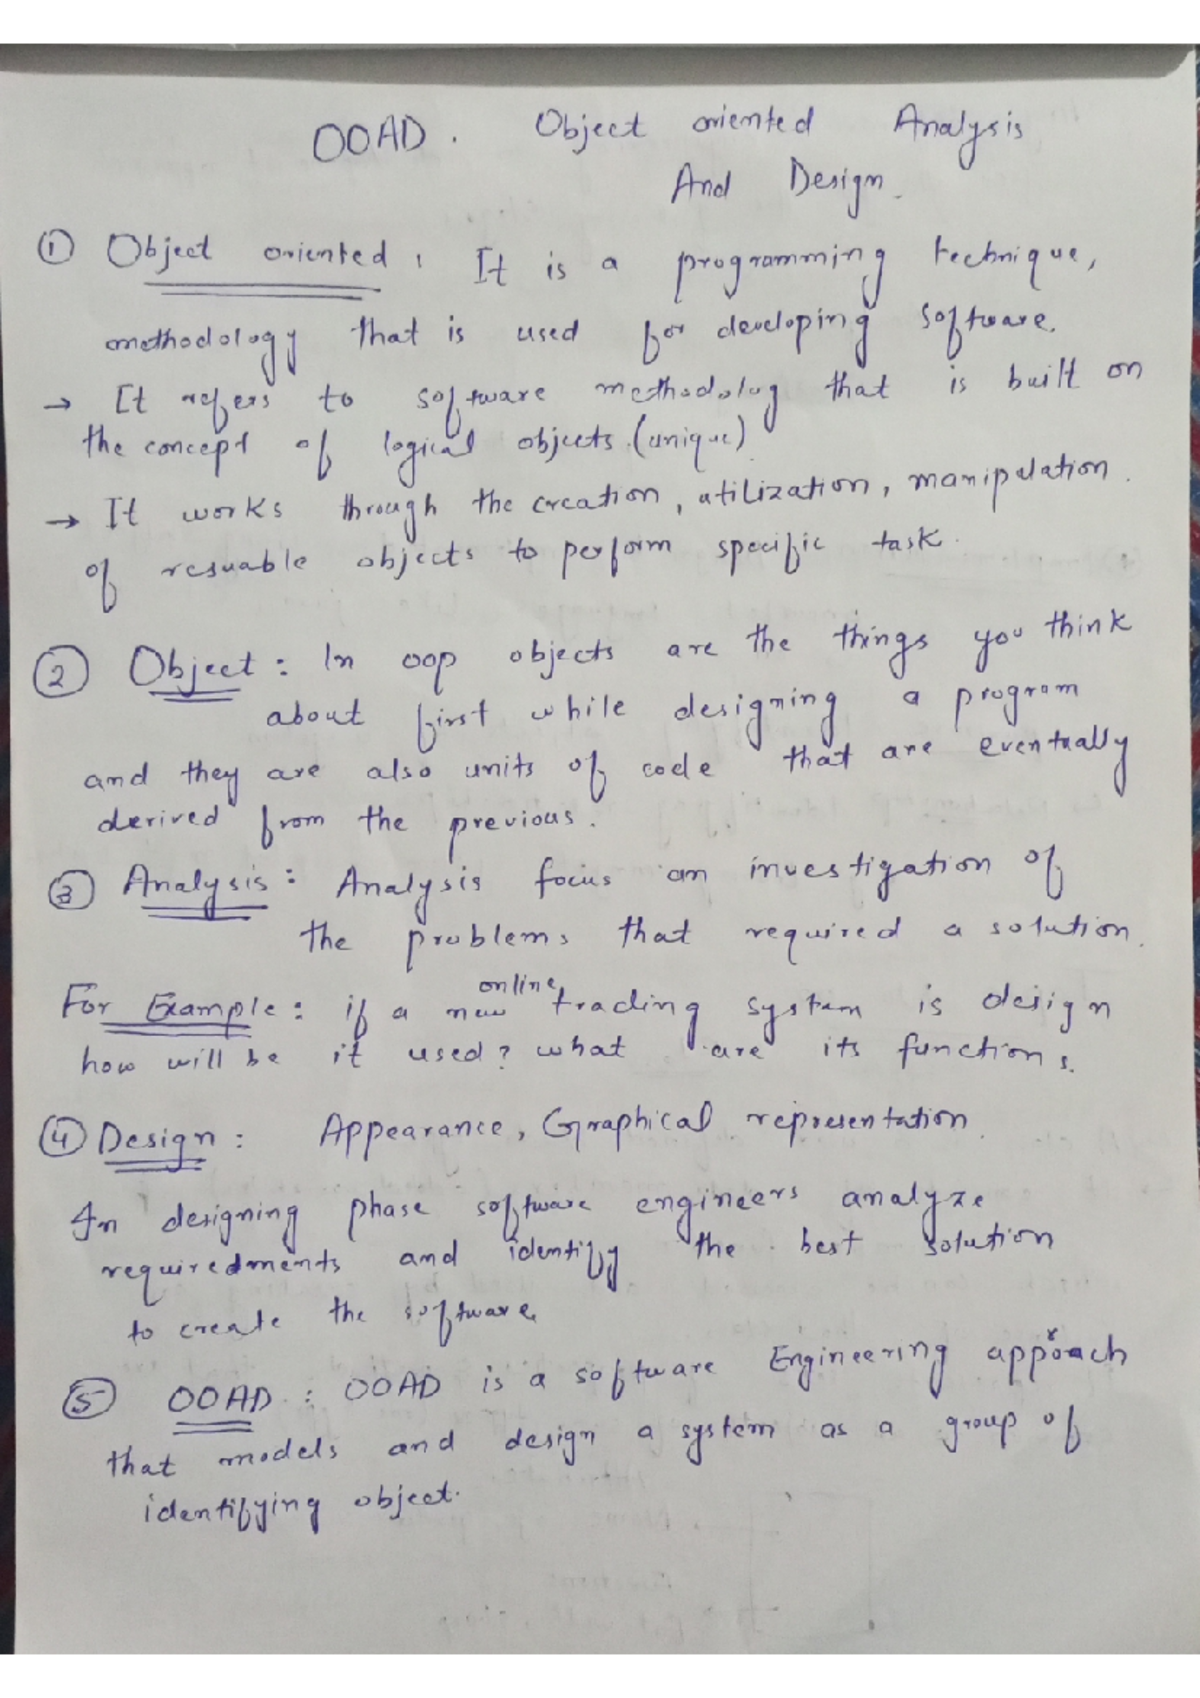 OOAD. Object oriented Analysis
And Design.
① Object oriented : It is a programming technique,
methodology that is used for developing software.
→ It refers to software methodolog that is built on
the concept of logical objects. (unique)
→ It works through the creation, utilization, manipulation.
of resuable objects to perform specific task.
② Object : In oop objects are the things you think
about first while designing a program
and they are also units of code that are eventually
derived from the previous.
③ Analysis : Analysis focus on investigation of
the problems that required a solution.
For Example : if a new online trading system is design
how will be it used? what are its functions.
④ Design : Appearance, Graphical representation.
In designing phase software engineers analyze
requiredments and identify the best solution
to create the software.
⑤ OOAD : OOAD is a software Engineering approach
that models and design a system as a group of
identifying object.